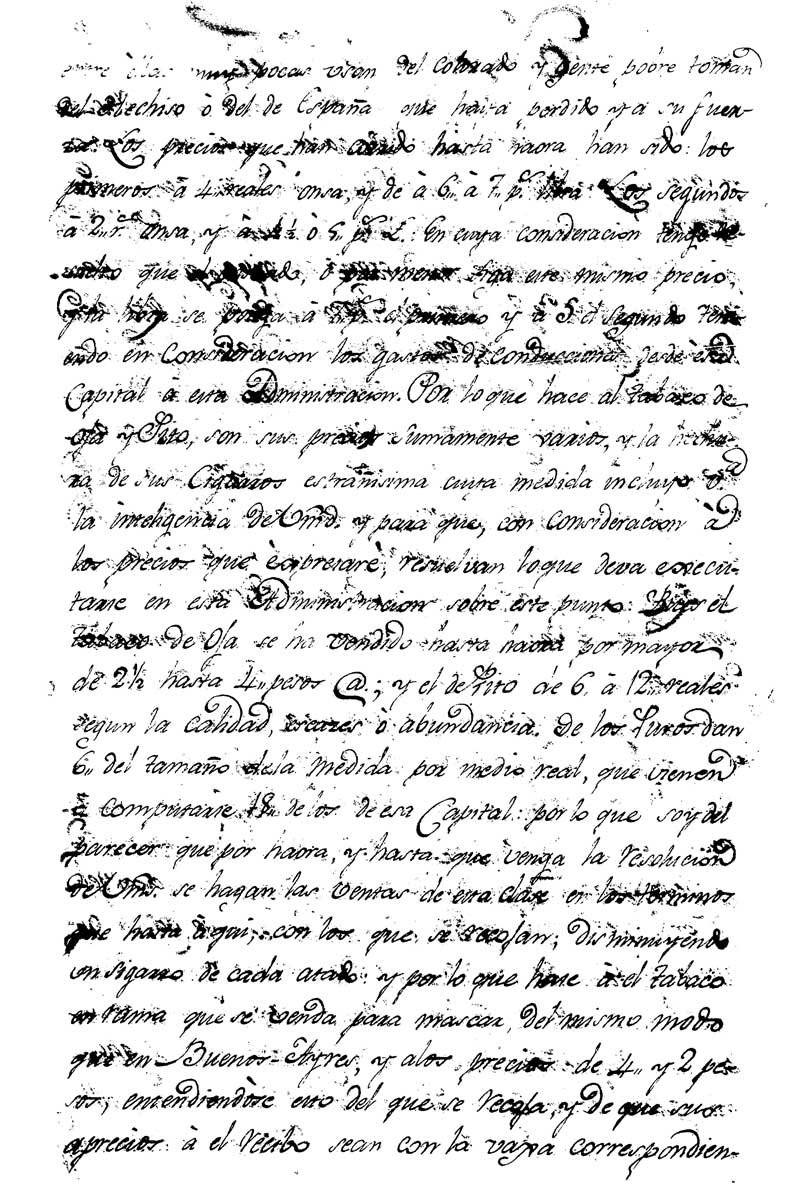 entre èllas muy pocas usan del Colorado y Gente pobre toman
del Mechiso ò del de España que haia perdido ya su fuer-
za. Los precios que han corrido hasta haora han sido: los
primeros à 4 reales onsa, y de à 6,, à 7,, p.s libra Los segundos
à 2,, r.s onsa, y à 4½ ò 5,, p.s L. En cuya consideracion tengo re-
suelto que el , ò por menor siga este mismo precio,
y la libra se ponga à p.s el primero y à 5 el segundo teni-
endo en Consideracion los gastos de conducciona desde esa
Capital à esta Administracion. Por lo que hace al tabaco de
oja y Pito, son sus precios sumamente varios, y la hechu-
ra de sus Cigarros estrañisima cuya medida incluyo à
la inteligencia de Vmd. y para que, con Consideracion à
los precios que èspresarè, resuelvan lo que deva execu-
tarse en esta Administracion sobre este punto: Pues el
tabaco de Oja se ha vendido hasta haora por mayor
de 2½ hasta 4,, pesos @.; y el de Pito de 6 à 12,, reales
segun la calidad, escases ò abundancia. De los Puros dan
6,, del tamaño de la medida por medio real, que vienen
à computarse 18,, de los de esa Capital: por lo que soy del
parecer que por haora, y hasta que venga la resolucion
de Vmd. se hagan las ventas de esta clase en los terminos
que hasta àqui, con los que se recojan, disminuyendo
un sigarro de cada atado: y por lo que hace à el tabaco
en rama que se venda para mascar, del mismo modo
que en Buenos-Ayres, y a los precios de 4,, y 2 pe-
sos, entendiendòse esto del que se recoja, y de que sus
aprecios à el recibo sean con la vaxa correspondien-